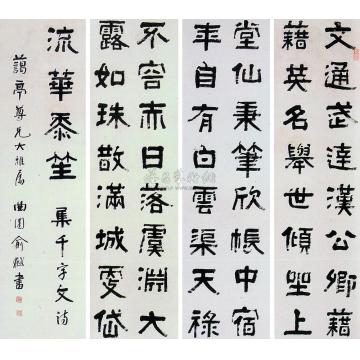 文通武達漢公卿藉
藉英名舉世傾坐上
堂仙秉筆欣帳中宿
年自有白雲渠天祿
不容赤日落虞淵大
露如珠散滿城雯岱
流華黍笙 集千字文詩
藹亭尊兄大雅屬 曲園俞樾書